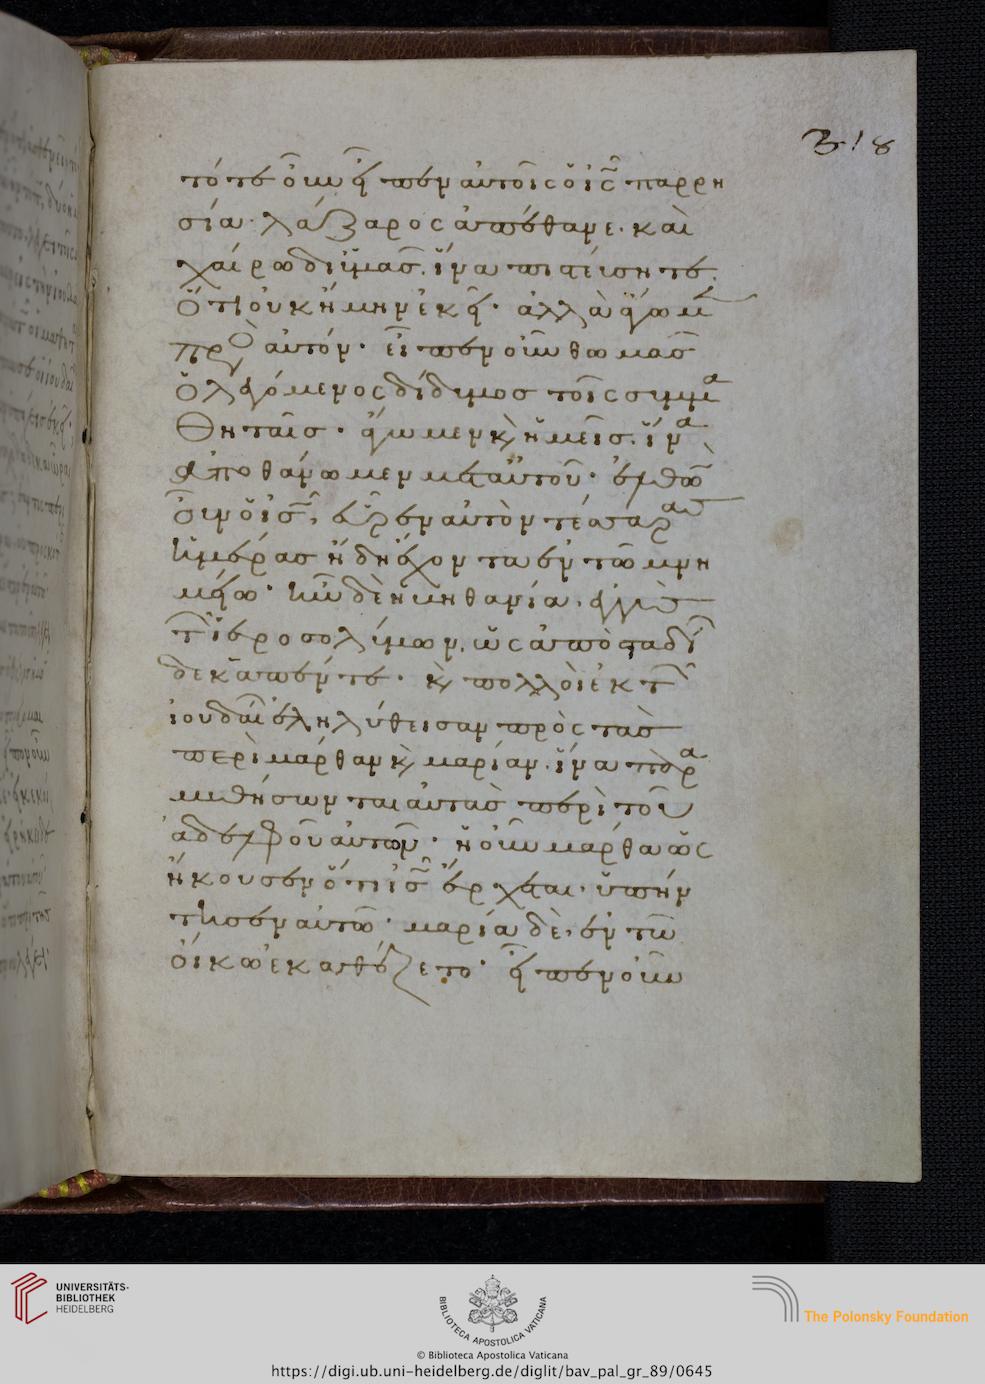 318
τότε οὖν εἶπεν αὐτοῖς ὁ ἰς παρρη
σία· λάζαρος ἀπέθανε· καὶ
χαίρω δι ὑμᾶς. ἵνα πιστεύσητε.
ὅτι οὐκ ἤμην ἐκεῖ· ἀλλὰ ἄγωμ
πρὸ αὐτόν· εἶπεν οὖν θωμᾶς
ὁ λεγόμενος δίδυμος τοῖς συμμα
θηταῖς· ἄγωμεν κ ἡμεῖς. ἵνα
ἀποθάνωμεν μετ αὐτοῦ· ἐλθὼ
οὖν ὁ ἰς, εὗρεν αὐτὸν τέσσαρας
ἡμέρας ἤδη ἔχοντα ἐν τῶ μνη
μείω· ἦν δὲ ἡ βηθανία, ἐγγὺς
τῶν ἱεροσολύμων, ὡς ἀπὸ σταδί
δεκαπέντε· κ πολλοὶ ἐκ τῶν
ἰουδαί ἐληλύθεισαν πρὸς τὰς
περὶ μάρθαν κ μαρίαν. ἵνα παρα
μυθήσωνται αὐτὰς περὶ τοῦ
ἀδελφοῦ αὐτῶν· ἡ οὖν μάρθα ὡς
ἤκουσεν ὅτι ἰς ἔρχεται· ὑπήν
τησεν αὐτῶ· μαρία δὲ, ἐν τῶ
οἴκω ἐκαθέζετο· εἶπεν οὖν
UNIVERSITÄTS-
BIBLIOTHEK
HEIDELBERG
BIBLIOTECA APOSTOLICA VATICANA
The Polonsky Foundation
© Biblioteca Apostolica Vaticana
https://digi.ub.uni-heidelberg.de/diglit/bav_pal_gr_89/0645